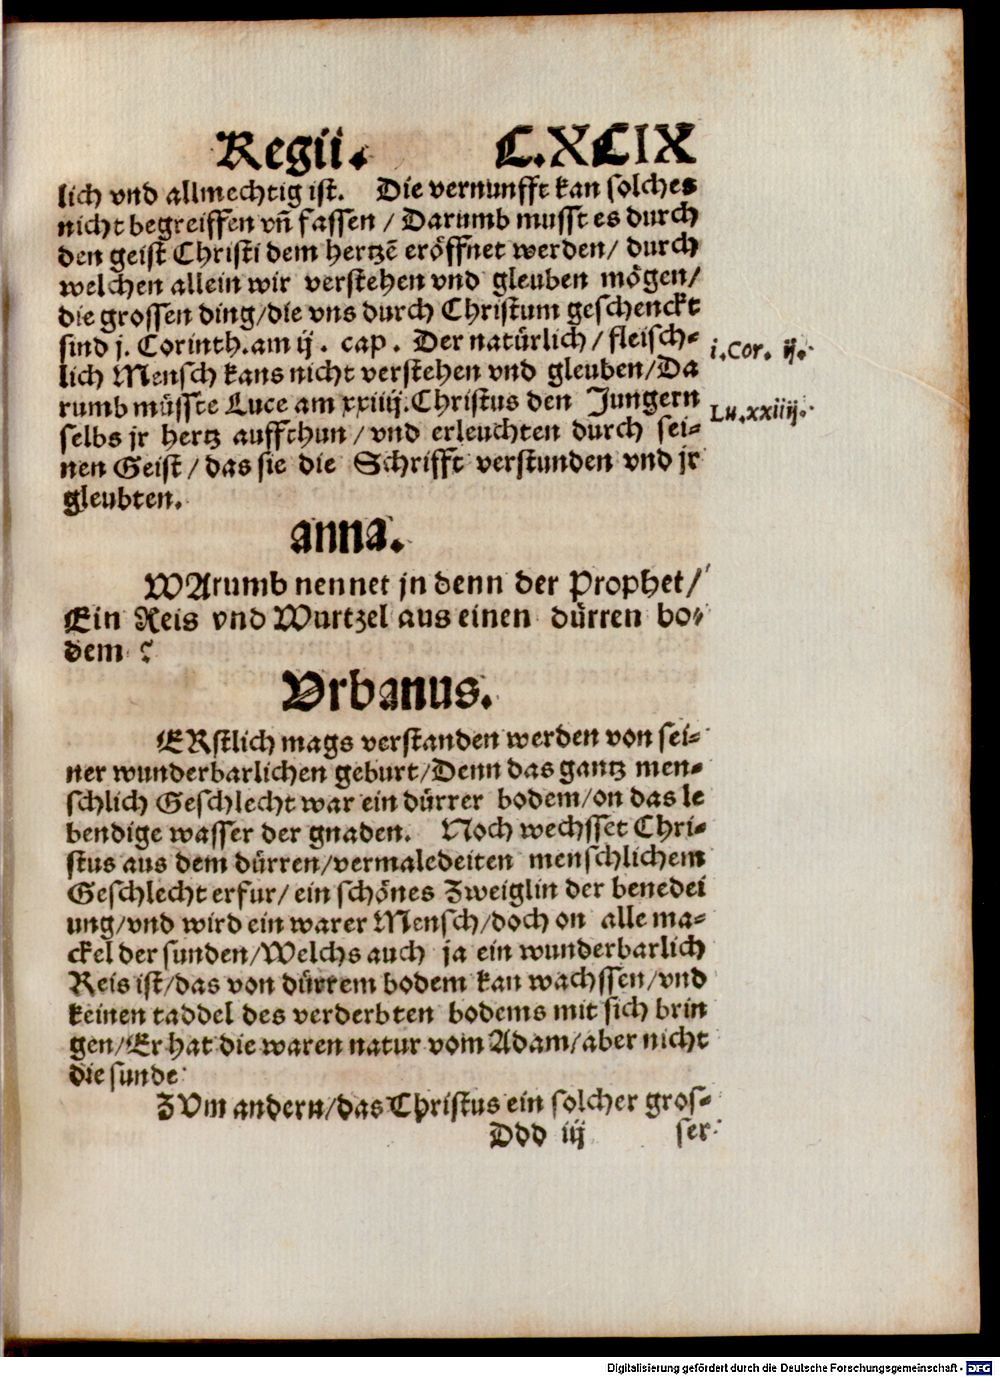 Regii. C.XCIX
lich vnd allmechtig ist. Die vernunfft kan solches
nicht begreiffen vñ fassen / Darumb musst es durch
den geist Christi dem hertzē eröffnet werden/ durch
welchen allein wir verstehen vnd gleuben mögen/
die grossen ding/die vns durch Christum geschenckt
sind j. Corinth.am ij. cap. Der natürlich / fleisch-
lich Mensch kans nicht verstehen vnd gleuben/Da
i.Cor. ij.
rumb müsste Luce am xxiiij.Christus den Jungern
Lu.xxiiij.
selbs jr hertz auffthun / vnd erleuchten durch sei-
nen Geist / das sie die Schrifft verstunden vnd jr
gleubten.
anna.
WArumb nennet jn denn der Prophet/
Ein Reis vnd Wurtzel aus einen dürren bo-
dem ?
Vrbanus.
ERstlich mags verstanden werden von sei-
ner wunderbarlichen geburt/Denn das gantz men-
schlich Geschlecht war ein dürrer bodem/on das le
bendige wasser der gnaden. Noch wechsset Chri-
stus aus dem dürren/vermaledeiten menschlichem
Geschlecht erfur/ ein schönes Zweiglin der benedei
ung/vnd wird ein warer Mensch/doch on alle ma-
ckel der sunden/Welchs auch ja ein wunderbarlich
Reis ist/das von dürrem bodem kan wachssen/vnd
keinen taddel des verderbten bodems mit sich brin
gen/Er hat die waren natur vom Adam/aber nicht
die sunde
ZVm andern/das Christus ein solcher gros-
Ddd iij ser
Digitalisierung gefördert durch die Deutsche Forschungsgemeinschaft - DFG